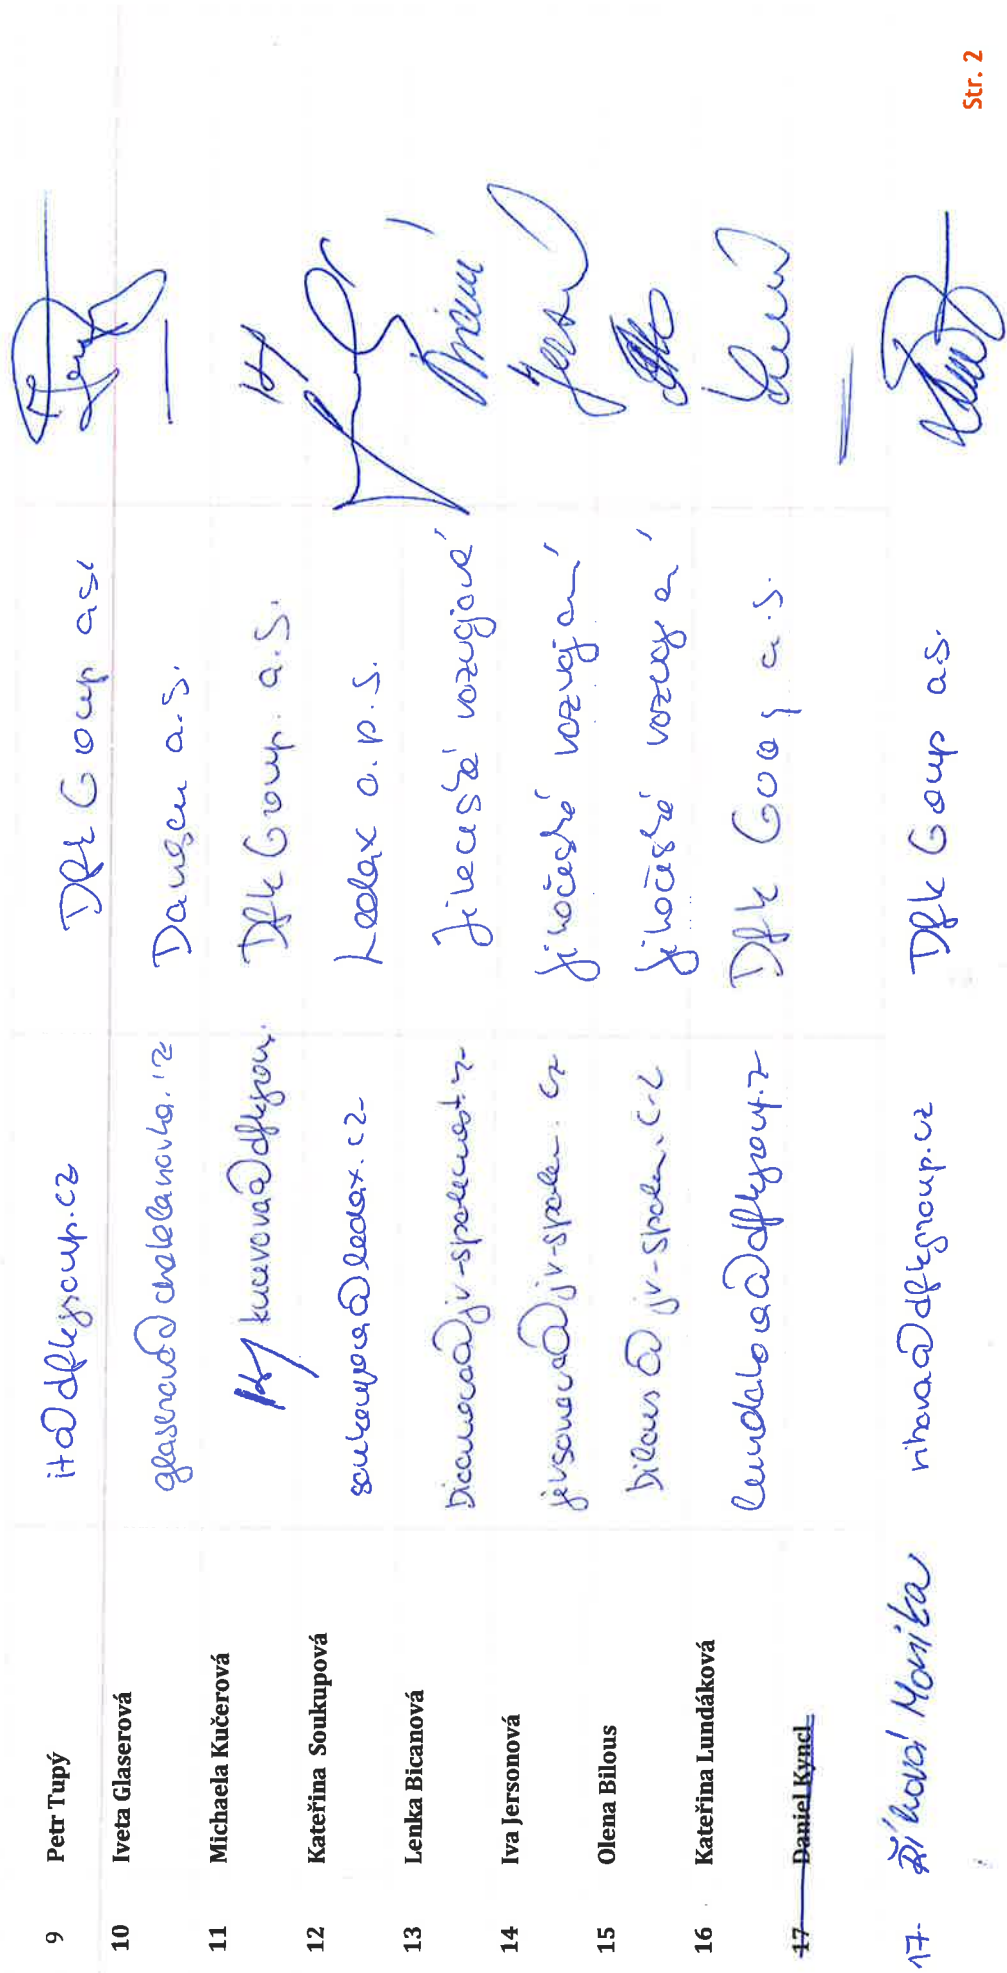 9 Petr Tupý it@dfkgroup.cz Dfk Group a.s.
10 Iveta Glaserová glaserova@chelcanovka.cz a.s.
11 Michaela Kučerová kucerova@dfkgroup. Dfk Group. a.s.
12 Kateřina Soukupová soukupova@ledax.cz Ledax o.p.s.
13 Lenka Bicanová bicanova@jv-spolecnost.cz Jihočeská rozvojová
14 Iva Jersonová jersonova@jv-spolec.cz Jihočeská rozvojová
15 Olena Bilous bilous@jv-spolec.cz Jihočeská rozvojová
16 Kateřina Lundáková lundakova@dfkgroup.cz Dfk Group a.s.
17 Daniel Kyncl
17. Říhová Monika rihova@dfkgroup.cz Dfk Group a.s.
Str. 2